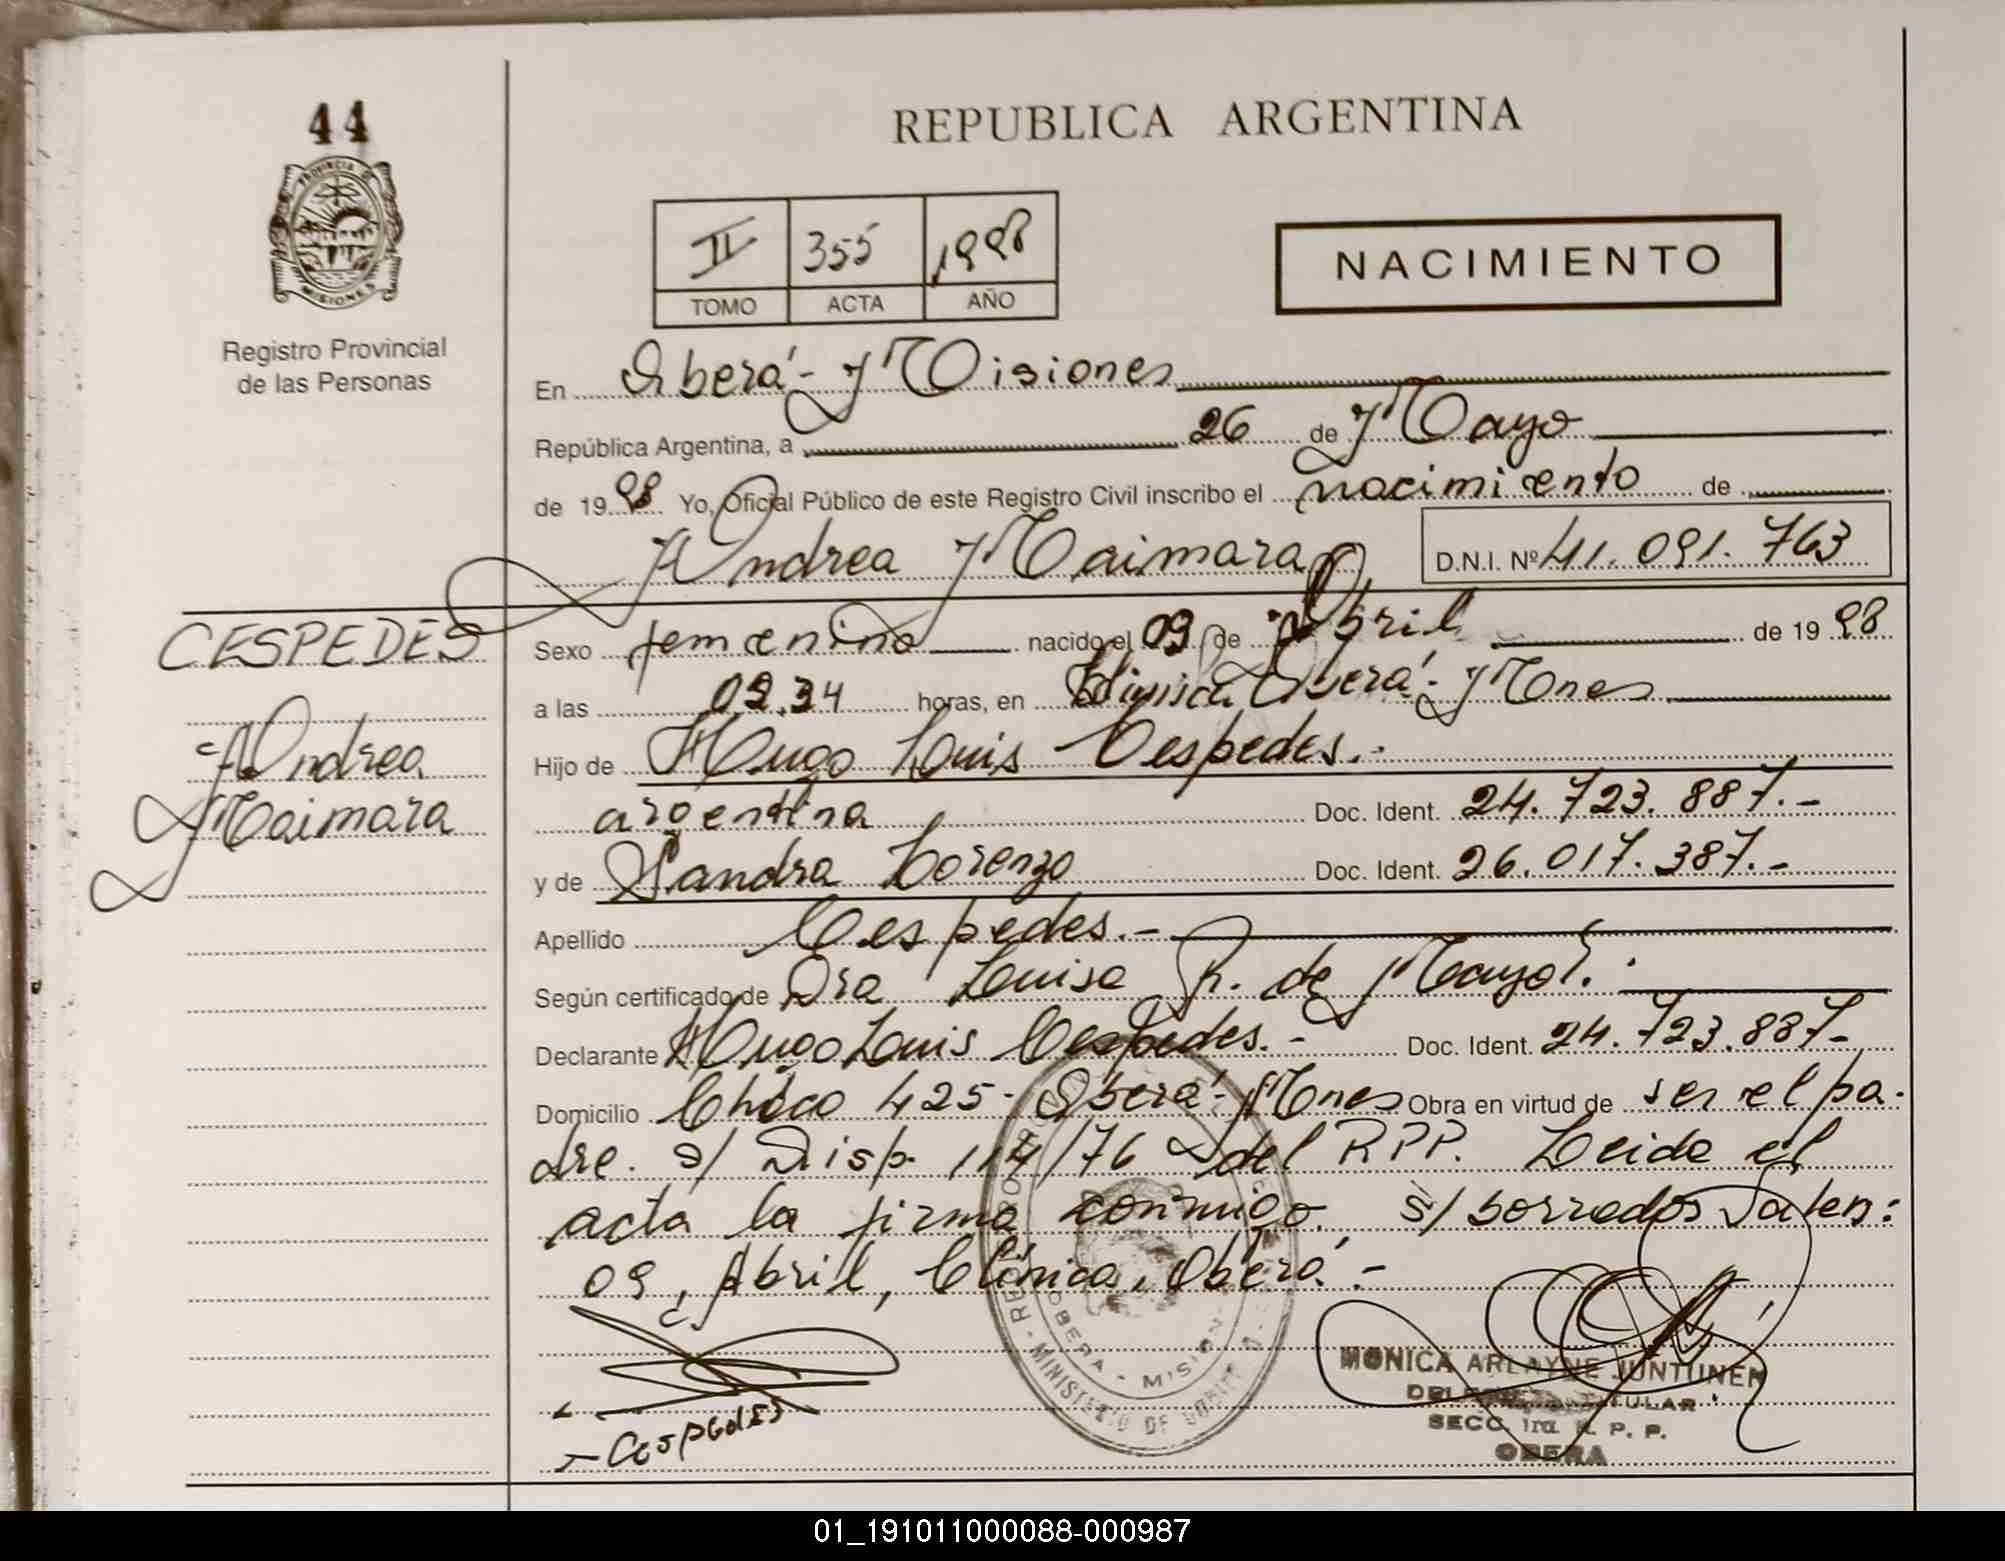 44
PROVINCIA DE
MISIONES
Registro Provincial
de las Personas
REPUBLICA ARGENTINA
II 355 1998
TOMO ACTA AÑO
NACIMIENTO
En Oberá - Misiones
República Argentina, a 26 de Mayo
de 1998 Yo, Oficial Público de este Registro Civil inscribo el nacimiento de
Andrea Maimara D.N.I. Nº 41.091.763
CESPEDES
Andrea
Maimara
Sexo femenino nacido el 09 de Abril de 1998
a las 09.34 horas, en Clínica Oberá - Mnes
Hijo de Hugo Luis Cespedes.-
argentina Doc. Ident. 24.723.887.-
y de Sandra Lorenzo Doc. Ident. 26.017.387.-
Apellido Cespedes.-
Según certificado de Dra Luisa R. de Mayol.
Declarante Hugo Luis Cespedes.- Doc. Ident. 24.723.887-
Domicilio Chaco 425 - Oberá - Mnes Obra en virtud de ser el pa-
dre. s/ Disp. 114/76 del RPP. Leida el
acta la firma conmigo. s/ borrados Valen:
09, Abril, Clínica, Oberá.-
Cespedes
OBERA - MISIONES
MINISTERIO DE GOBIERNO
MONICA ARLAYNE JUNTUNEN
TITULAR
SECC. 1ra. R. P. P.
OBERA
01_191011000088-000987